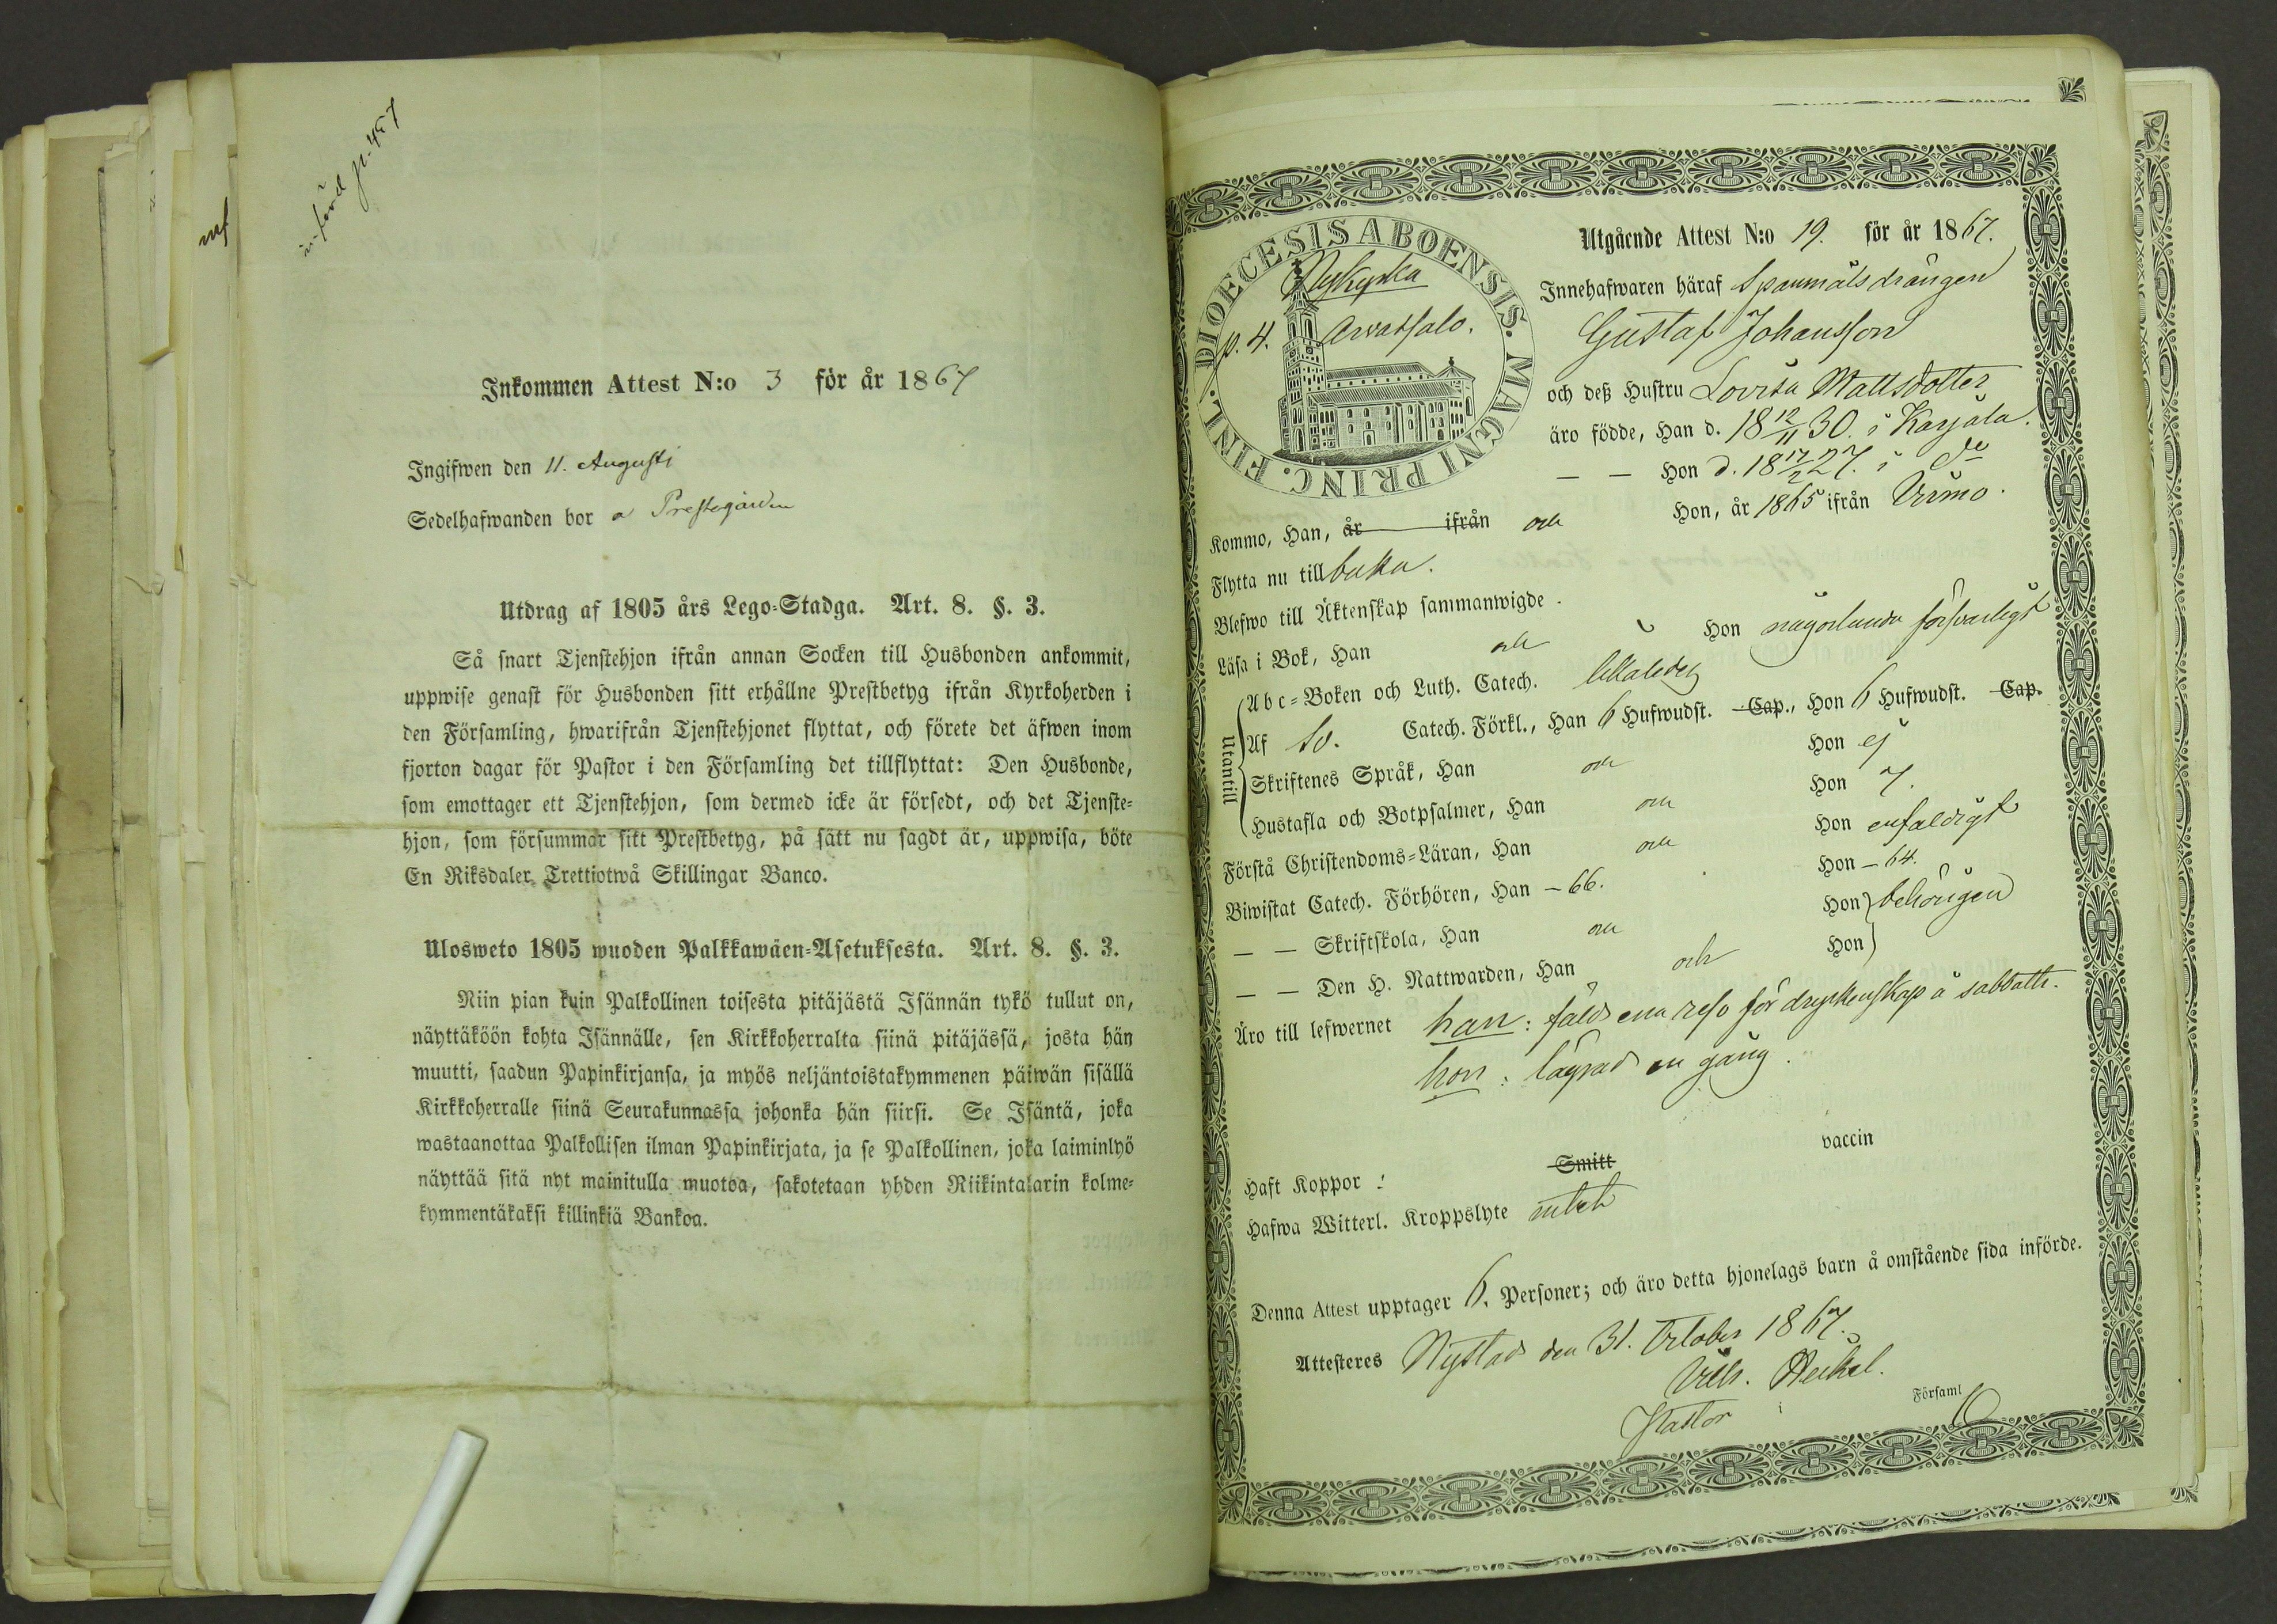 införd p. 457
Inkommen Attest N:o 3 för år 1867
Ingifwen den 11. Augusti
Sedelhafwanden bor a Prestegården
Utdrag af 1805 års Lego-Stadga. Art. 8. §. 3.
Så snart Tjenstehjon ifrån annan Socken till Husbonden ankommit,
uppwise genast för Husbonden sitt erhållne Prestbetyg ifrån Kyrkoherden i
den Församling, hwarifrån Tjenstehjonet flyttat, och förete det äfwen inom
fjorton dagar för Pastor i den Församling det tillflyttat: Den Husbonde,
som emottager ett Tjenstehjon, som dermed icke är försedt, och det Tjenste-
hjon, som försummar sitt Prestbetyg, på sätt nu sagdt är, uppwisa, böte
En Riksdaler Trettiotwå Skillingar Banco.
Ulosweto 1805 wuoden Palkkawäen-Asetuksesta. Art. 8. §. 3.
Niin pian kuin Palkollinen toisesta pitäjästä Isännän tykö tullut on,
näyttäköön kohta Isännälle, sen Kirkkoherralta siinä pitäjässä, josta hän
muutti, saadun Papinkirjansa, ja myös neljäntoistakymmenen päiwän sisällä
Kirkkoherralle siinä Seurakunnassa johonka hän siirsi. Se Isäntä, joka
wastaanottaa Palkollisen ilman Papinkirjata, ja se Palkollinen, joka laiminlyö
näyttää sitä nyt mainitulla muotoa, sakotetaan yhden Riikintalarin kolme-
kymmentäkaksi killinkiä Bankoa.
DIOECESIS ABOENSIS. MAGNI PRINC. FINL.
Nykyrka
p. 4. Arvassalo.
Utgående Attest N:o 19. för år 1867.
Innehafwaren häraf Spanmålsdrängen
Gustaf Johansson
och deß Hustru Lovisa Mattsdotter
äro födde, Han d. 18 12/11 30. i Karjala.
— — Hon d. 18 17/2 27. i do
Kommo, Han, år ifrån och Hon, år 1865 ifrån Virmo.
Flytta nu till baka.
Blefwo till Äktenskap sammanwigde .
Läsa i Bok, Han och Hon någorlunda försvarligt
Utantill
Abc-Boken och Luth. Catech. likaledes
Af Sv. Catech. Förkl., Han 6 Hufwudst. Cap., Hon 6 Hufwudst. Cap.
Skriftenes Språk, Han och Hon ej
Hustafla och Botpsalmer, Han och Hon ej.
Förstå Christendoms-Läran, Han och Hon enfaldigt
Biwistat Catech. Förhören, Han – 66. Hon – 64.
— — Skriftskola, Han och Hon behörigen
— — Den H. Nattwarden, Han och Hon
Äro till lefwernet han: fälld ena resa för dryckenskap å sabbath.
hon: lägrad en gång.
Haft Koppor : Smitt vaccin
Hafwa Witterl. Kroppslyte intet
Denna Attest upptager 6. Personer; och äro detta hjonelags barn å omstående sida införde.
Attesteres Nystad den 31. October 1867.
Vilh. Heikel.
Pastor i Församl